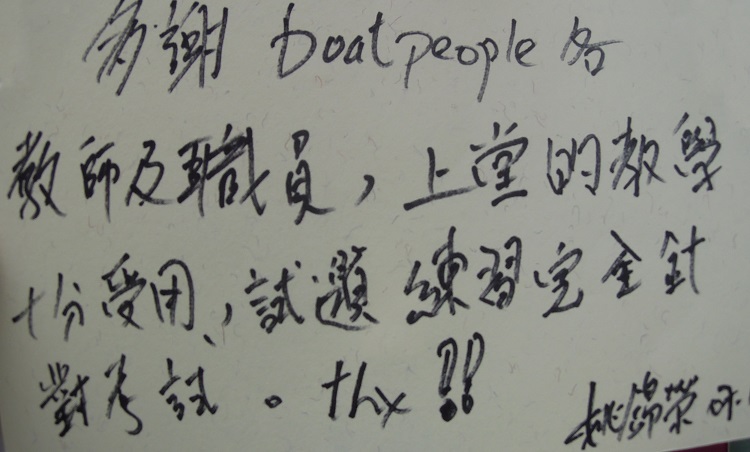 多謝 boatpeople 各
教師及職員，上堂的教學
十分受用，試題練習完全針
對考試。thx!!